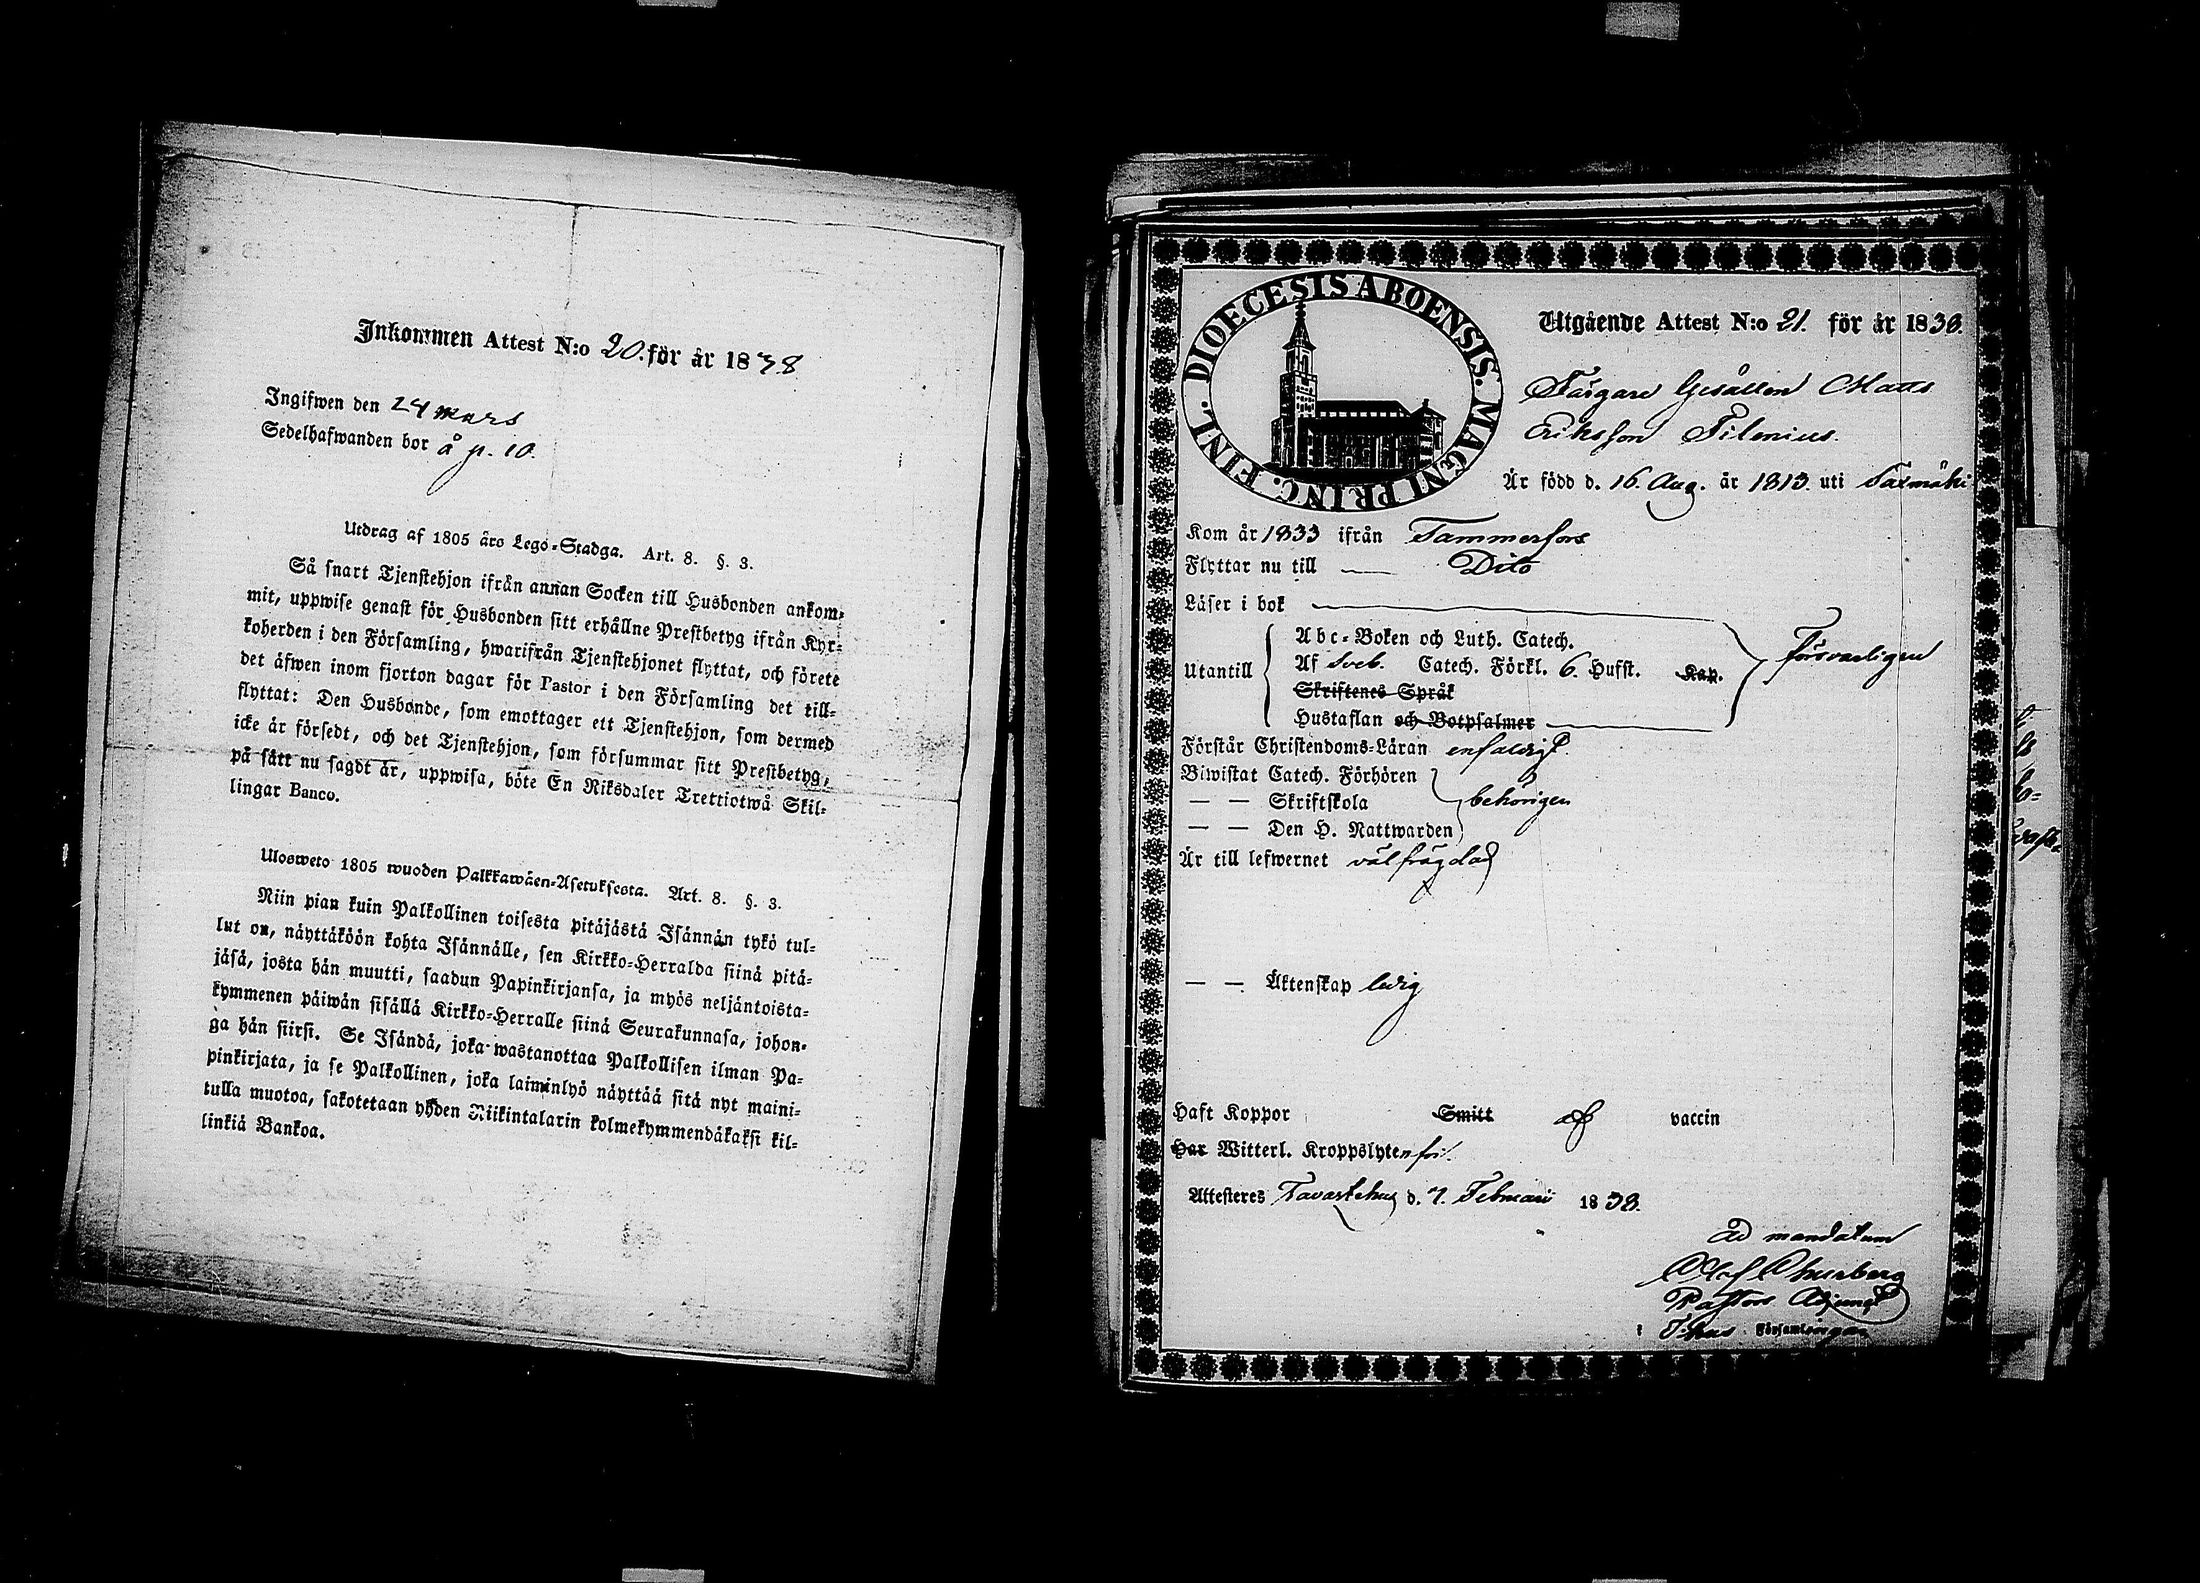 Inkommen Attest N:o 20. för år 1838
Ingifwen den 24 Mars
Sedelhafwanden bor å p. 10.
Utdrag af 1805 års Lego-Stadga. Art. 8. §. 3.
Så snart Tjenstehjon ifrån annan Socken till Husbonden ankom-
mit, uppwise genast för Husbonden sitt erhållne Prestbetyg ifrån Kyr-
koherden i den Församling, hwarifrån Tjenstehjonet flyttat, och förete
det äfwen inom fjorton dagar för Pastor i den Församling det till-
flyttat: Den Husbonde, som emottager ett Tjenstehjon, som dermed
icke är försedt, och det Tjenstehjon, som försummar sitt Prestbetyg,
på sätt nu sagdt är, uppwisa, böte En Riksdaler Trettiotwå Skil-
lingar Banco.
Ulosweto 1805 wuoden Palkkawäen-Asetuksesta. Art. 8. §. 3.
Niin pian kuin Palkollinen toisesta pitäjästä Isännän tykö tul-
lut on, näyttäköön kohta Isännälle, sen Kirkko-Herralda siinä pitä-
jäsä, josta hän muutti, saadun Papinkirjansa, ja myös neljäntoista-
kymmenen päiwän sisällä Kirkko-Herralle siinä Seurakunnasa, johon-
ga hän siirsi. Se Isändä, joka wastanottaa Palkollisen ilman Pa-
pinkirjata, ja se Palkollinen, joka laiminlyö näyttää sitä nyt maini-
tulla muotoa, sakotetaan yhden Riikintalarin kolmekymmendäkaksi kil-
linkiä Bankoa.
DIOECESIS ABOENSIS. MAGNI PRINC. FINL.
Utgående Attest N:o 21. för år 1838.
Färgare Gesällen Matts
Eriksson Filenius.
Är född d. 16. Aug. år 1813. uti Saxmäki
Kom år 1833 ifrån Tammerfors
Flyttar nu till — Dito
Läser i bok
Utantill
Abc-Boken och Luth. Catech.
Af Sveb. Catech. Förkl. 6. Hufst. Kap.
Skriftenes Språk
Hustaflan och Botpsalmer
försvarligen
Förstår Christendoms-Läran enfaldigt.
Biwistat Catech. Förhören
— — Skriftskola behörigen
— — Den H. Nattwarden
Är till lefwernet välfrägdad
— — Äktenskap ledig
Haft Koppor Smitt af vaccin
Har Witterl. Kroppslyten fri.
Attesteres Tavastehus d. 7. Februari 1838.
Ad mandatum
Olof Churberg
Pastors Adjunct
i T:hus Församlingar